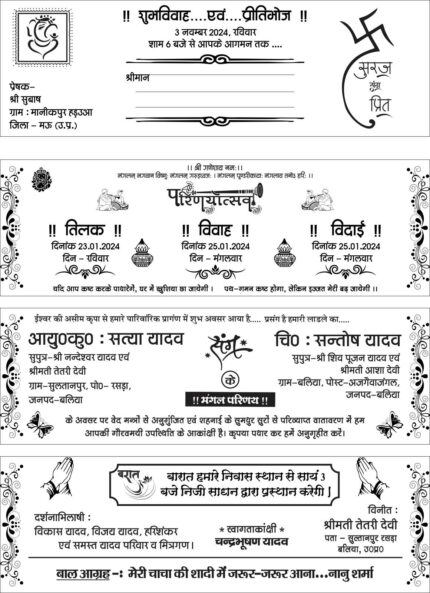 !! शुभविवाह....एवं....प्रीतिभोज !!
3 नवम्बर 2024, रविवार
शाम 6 बजे से आपके आगमन तक ....
श्रीमान
प्रेषक-
श्री सुबाष
ग्राम : मानीकपुर हड़उआ
जिला - मऊ (उ.प्र.)
सूरज
संग
प्रित
।। श्री गणेशाय नमः ।।
मंगलम् भगवान विष्णुः मंगलम् गरुड़ध्वजः । मंगलम् पुण्डरीकाक्षः मंगलाय तनोः हरिः ।।
परिणयोत्सव
!! तिलक !! !! विवाह !! !! विदाई !!
दिनांक 23.01.2024 दिनांक 25.01.2024 दिनांक 25.01.2024
दिन - रविवार दिन - मंगलवार दिन - मंगलवार
यदि आप कष्ट करके पधारेगें, घर में खुशिया छा जायेगी । पथ-गमन कष्ट होगा, लेकिन इज्जत मेरी बढ़ जायेगी ।।
ईश्वर की असीम कृपा से हमारे पारिवारिक प्रागंण में शुभ अवसर आया है..... प्रसंग है हमारी लाडले का.....
आयु०कु० : सत्या यादव
सुपुत्र-श्री नन्देश्वर यादव एवं
श्रीमती तेतरी देवी
ग्राम-सुलतानपुर, पो०- रसड़ा,
जनपद-बलिया
संग
चि० : सन्तोष यादव
सुपुत्र-श्री शिव पूजन यादव एवं
श्रीमती आशा देवी
ग्राम-बलिया, पोस्ट-अजगेंवाजंगल,
जनपद-बलिया
के
!! मंगल परिणय !!
के अवसर पर वेद मन्त्रों से अनुगुंजित एवं शहनाई के सुमधुर सुरों से परिव्याप्त वातावरण में हम
आपकी गौरवमयी उपस्थिति के आकांक्षी है। कृपया पधार कर हमें अनुगृहीत करें।
बारात
बारात हमारे निवास स्थान से सायं 3
बजे निजी साधन द्वारा प्रस्थान करेगी |
दर्शनाभिलाषी :
विकास यादव, विजय यादव, हरिशंकर
एवं समस्त यादव परिवार व मित्रगण।
* स्वागताकांक्षी *
चन्द्रभूषण यादव
विनीत :
श्रीमती तेतरी देवी
पता - सुल्तानपुर रसड़ा
बलिया, उ०प्र०
बाल आग्रह -: मेरी चाचा की शादी में जरूर-जरूर आना...नानु शर्मा